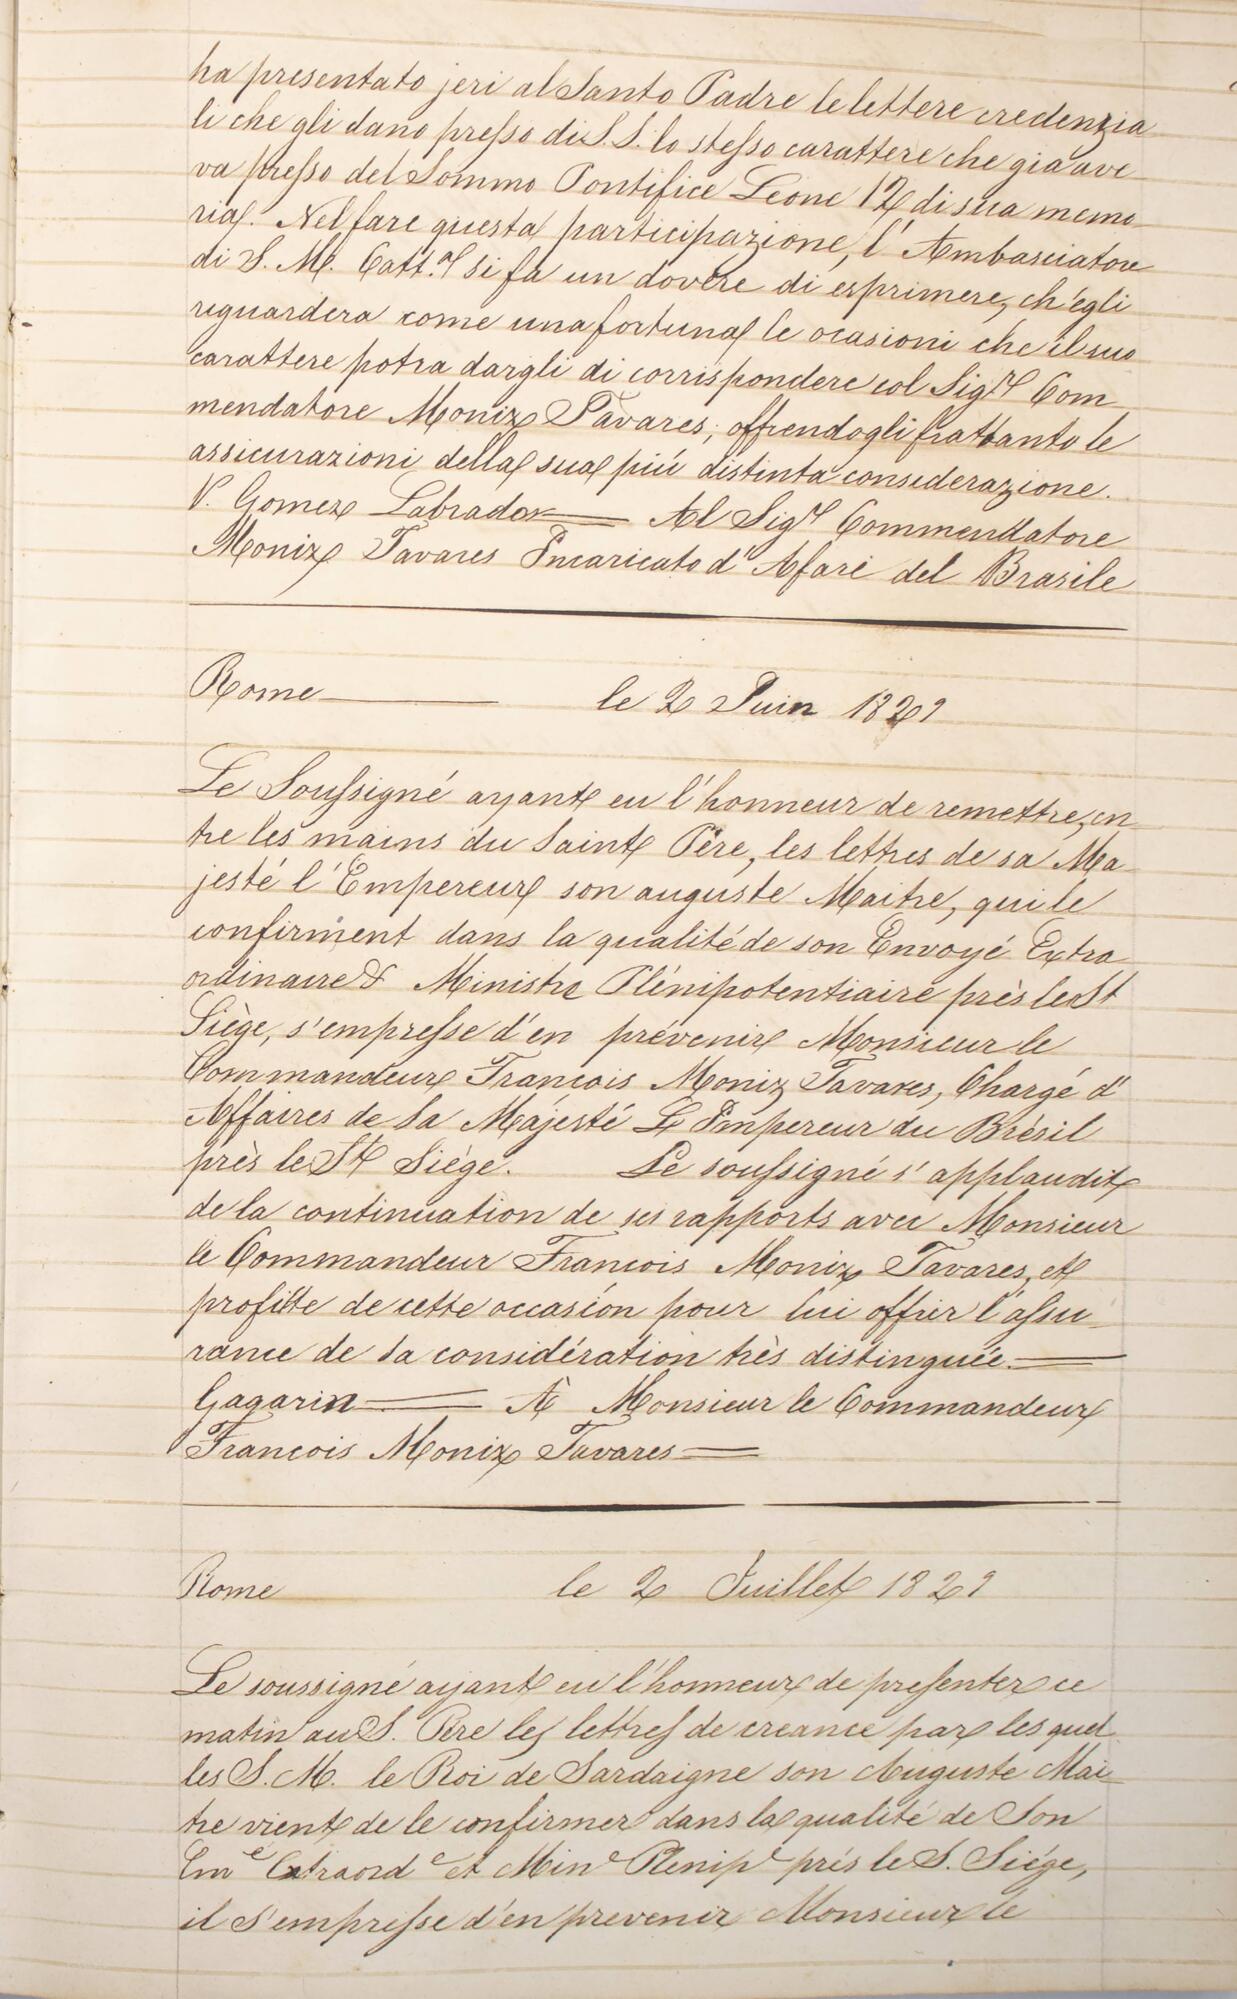 ha presentato jeri al Santo Padre le lettere credenzia
li che gli dano presso di S. S. lo stesso carattere che gia ave
va presso del Sommo Pontifice Leone 12 di sua memo
ria. Nel fare questa participazione, l' Ambasciatore
di S. M. Catt.ca si fa un dovere di esprimere, ch'egli
riguardera come una fortuna le ocasioni che il suo
carattere potra dargli di corrispondere col Sigr Com
mendatore Moniz Tavares, offrendogli frattanto le
assicurazioni della sua più distinta considerazione.
V. Gomez Labrador Al Sigr Commendatore
Moniz Tavares Incaricato d' Afari del Brasile
Rome le 2 Juin 1829
Le Soussigné ayant eu l'honneur de remettre, en
tre les mains du Saint Père, les lettres de sa Ma
jesté l'Empereur son auguste Maitre, qui le
confirment dans la qualité de son Envoyé Extra
ordinaire & Ministre Plénipotentiaire près le St
Siège, s'empresse d'en prévenir Monsieur le
Commandeur François Moniz Tavares, Chargé d'
Affaires de Sa Majesté L'Empereur du Brésil
près le St Siège. Le soussigné s'applaudit
de la continuation de ses rapports avec Monsieur
le Commandeur François Moniz Tavares, et
profitte de cette occasion pour lui offrir l'assu
rance de sa considération très distinguée.
Gagarin À Monsieur le Commandeur
François Moniz Tavares
Rome le 2 Juillet 1829
Le soussigné ayant eu l'honneur de presenter ce
matin au S. Père les lettres de creance par les quel
les S. M. le Roi de Sardaigne son Auguste Mai
tre vient de le confirmer dans la qualité de Son
Enve Extraorde et Mine Plenipe près le S. Siége,
il s'empresse d'en prevenir Monsieur le